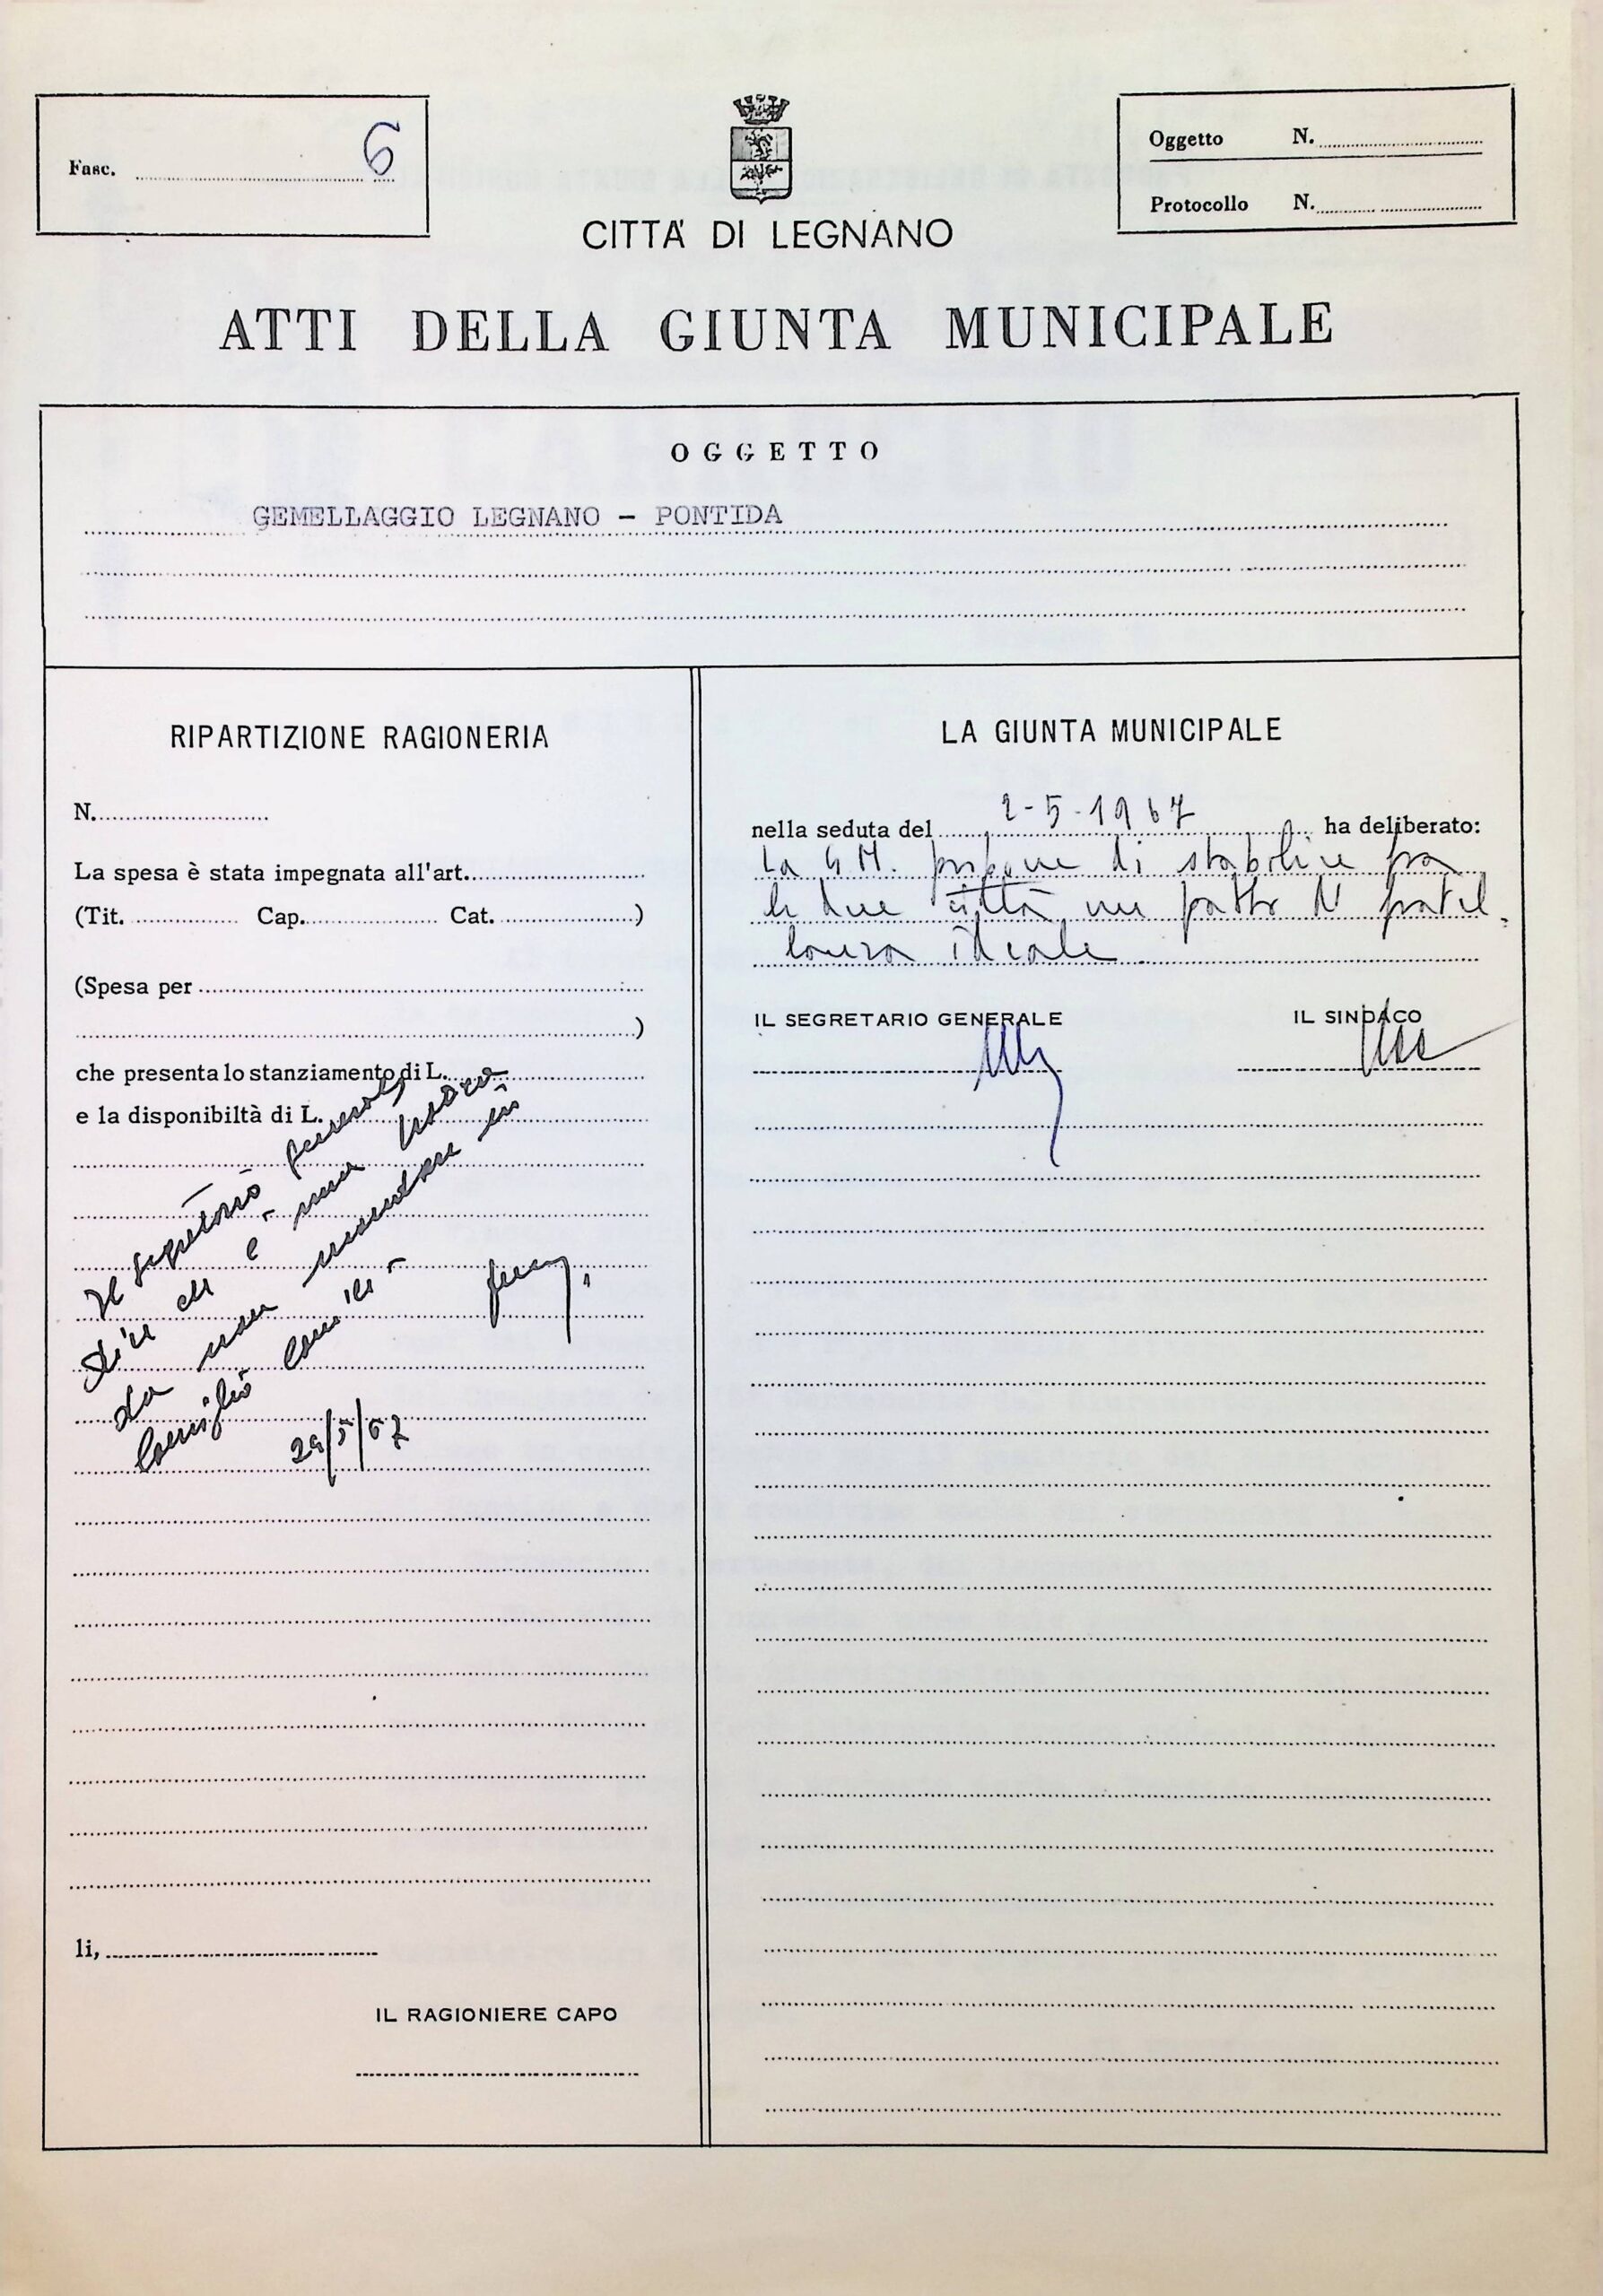 Fasc. 6
Oggetto N.
Protocollo N.
CITTÀ DI LEGNANO
ATTI DELLA GIUNTA MUNICIPALE
OGGETTO
GEMELLAGGIO LEGNANO - PONTIDA
RIPARTIZIONE RAGIONERIA
N.
La spesa è stata impegnata all'art.
(Tit. Cap. Cat. )
(Spesa per
)
che presenta lo stanziamento di L.
e la disponibiltà di L.
Il segretario
dice che è una
da non in
Consiglio
29/5/67
li,
IL RAGIONIERE CAPO
LA GIUNTA MUNICIPALE
nella seduta del 2-5-1967 ha deliberato:
La G M. propone di stabilire fra
le due città un patto di fratel
lanza ideale
IL SEGRETARIO GENERALE IL SINDACO